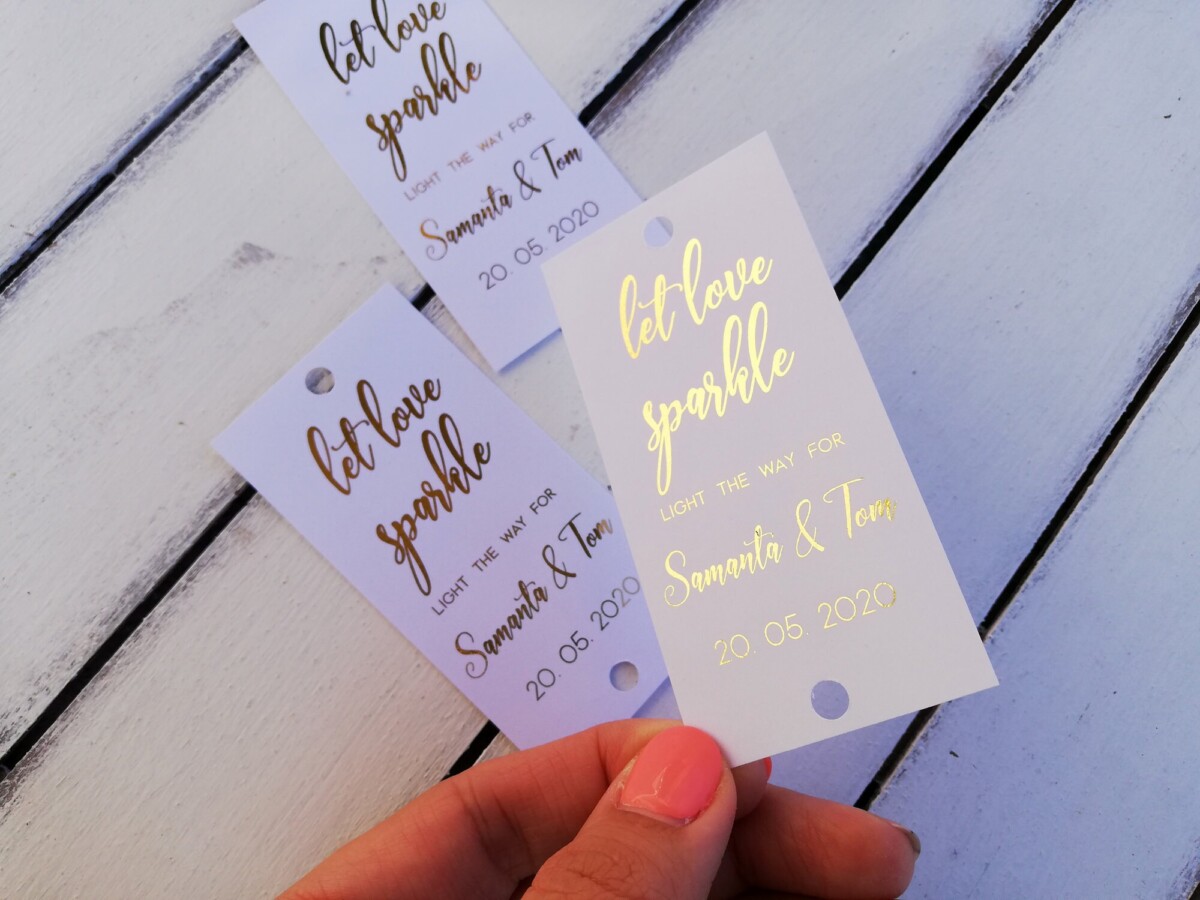 let love
sparkle
LIGHT THE WAY FOR
Samanta & Tom
20. 05. 2020
let love
sparkle
LIGHT THE WAY FOR
Samanta & Tom
20. 05. 2020
let love
sparkle
LIGHT THE WAY FOR
Samanta & Tom
20. 05. 2020